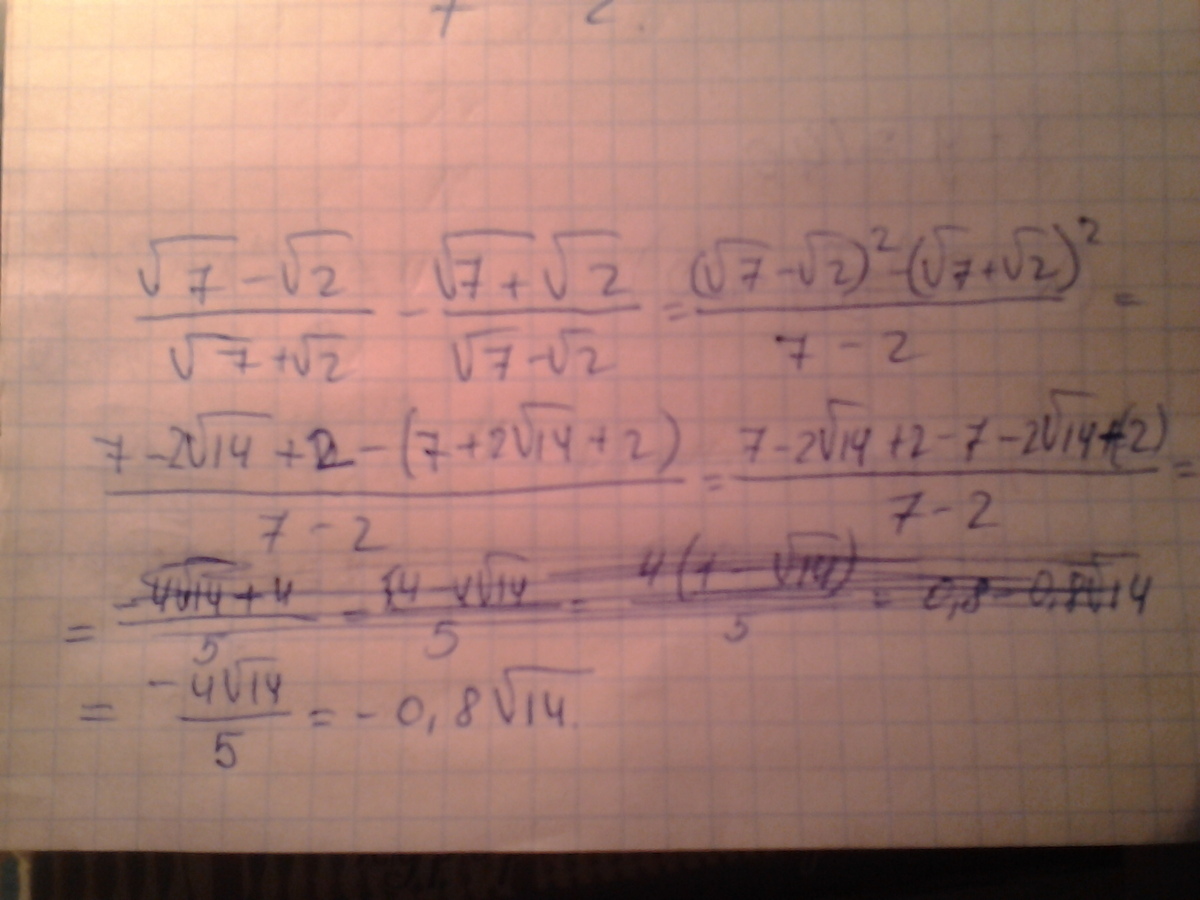 7 2
(√7 - √2)/(√7 + √2) - (√7 + √2)/(√7 - √2) = ((√7 - √2)² - (√7 + √2)²)/(7 - 2) =
(7 - 2√14 + 2 - (7 + 2√14 + 2))/(7 - 2) = (7 - 2√14 + 2 - 7 - 2√14 - 2)/(7 - 2) =
= (-4√14 + 4)/5 = (4 - 4√14)/5 = 4(1 - √14)/5 = 0,8 - 0,8√14
= (-4√14)/5 = -0,8√14.